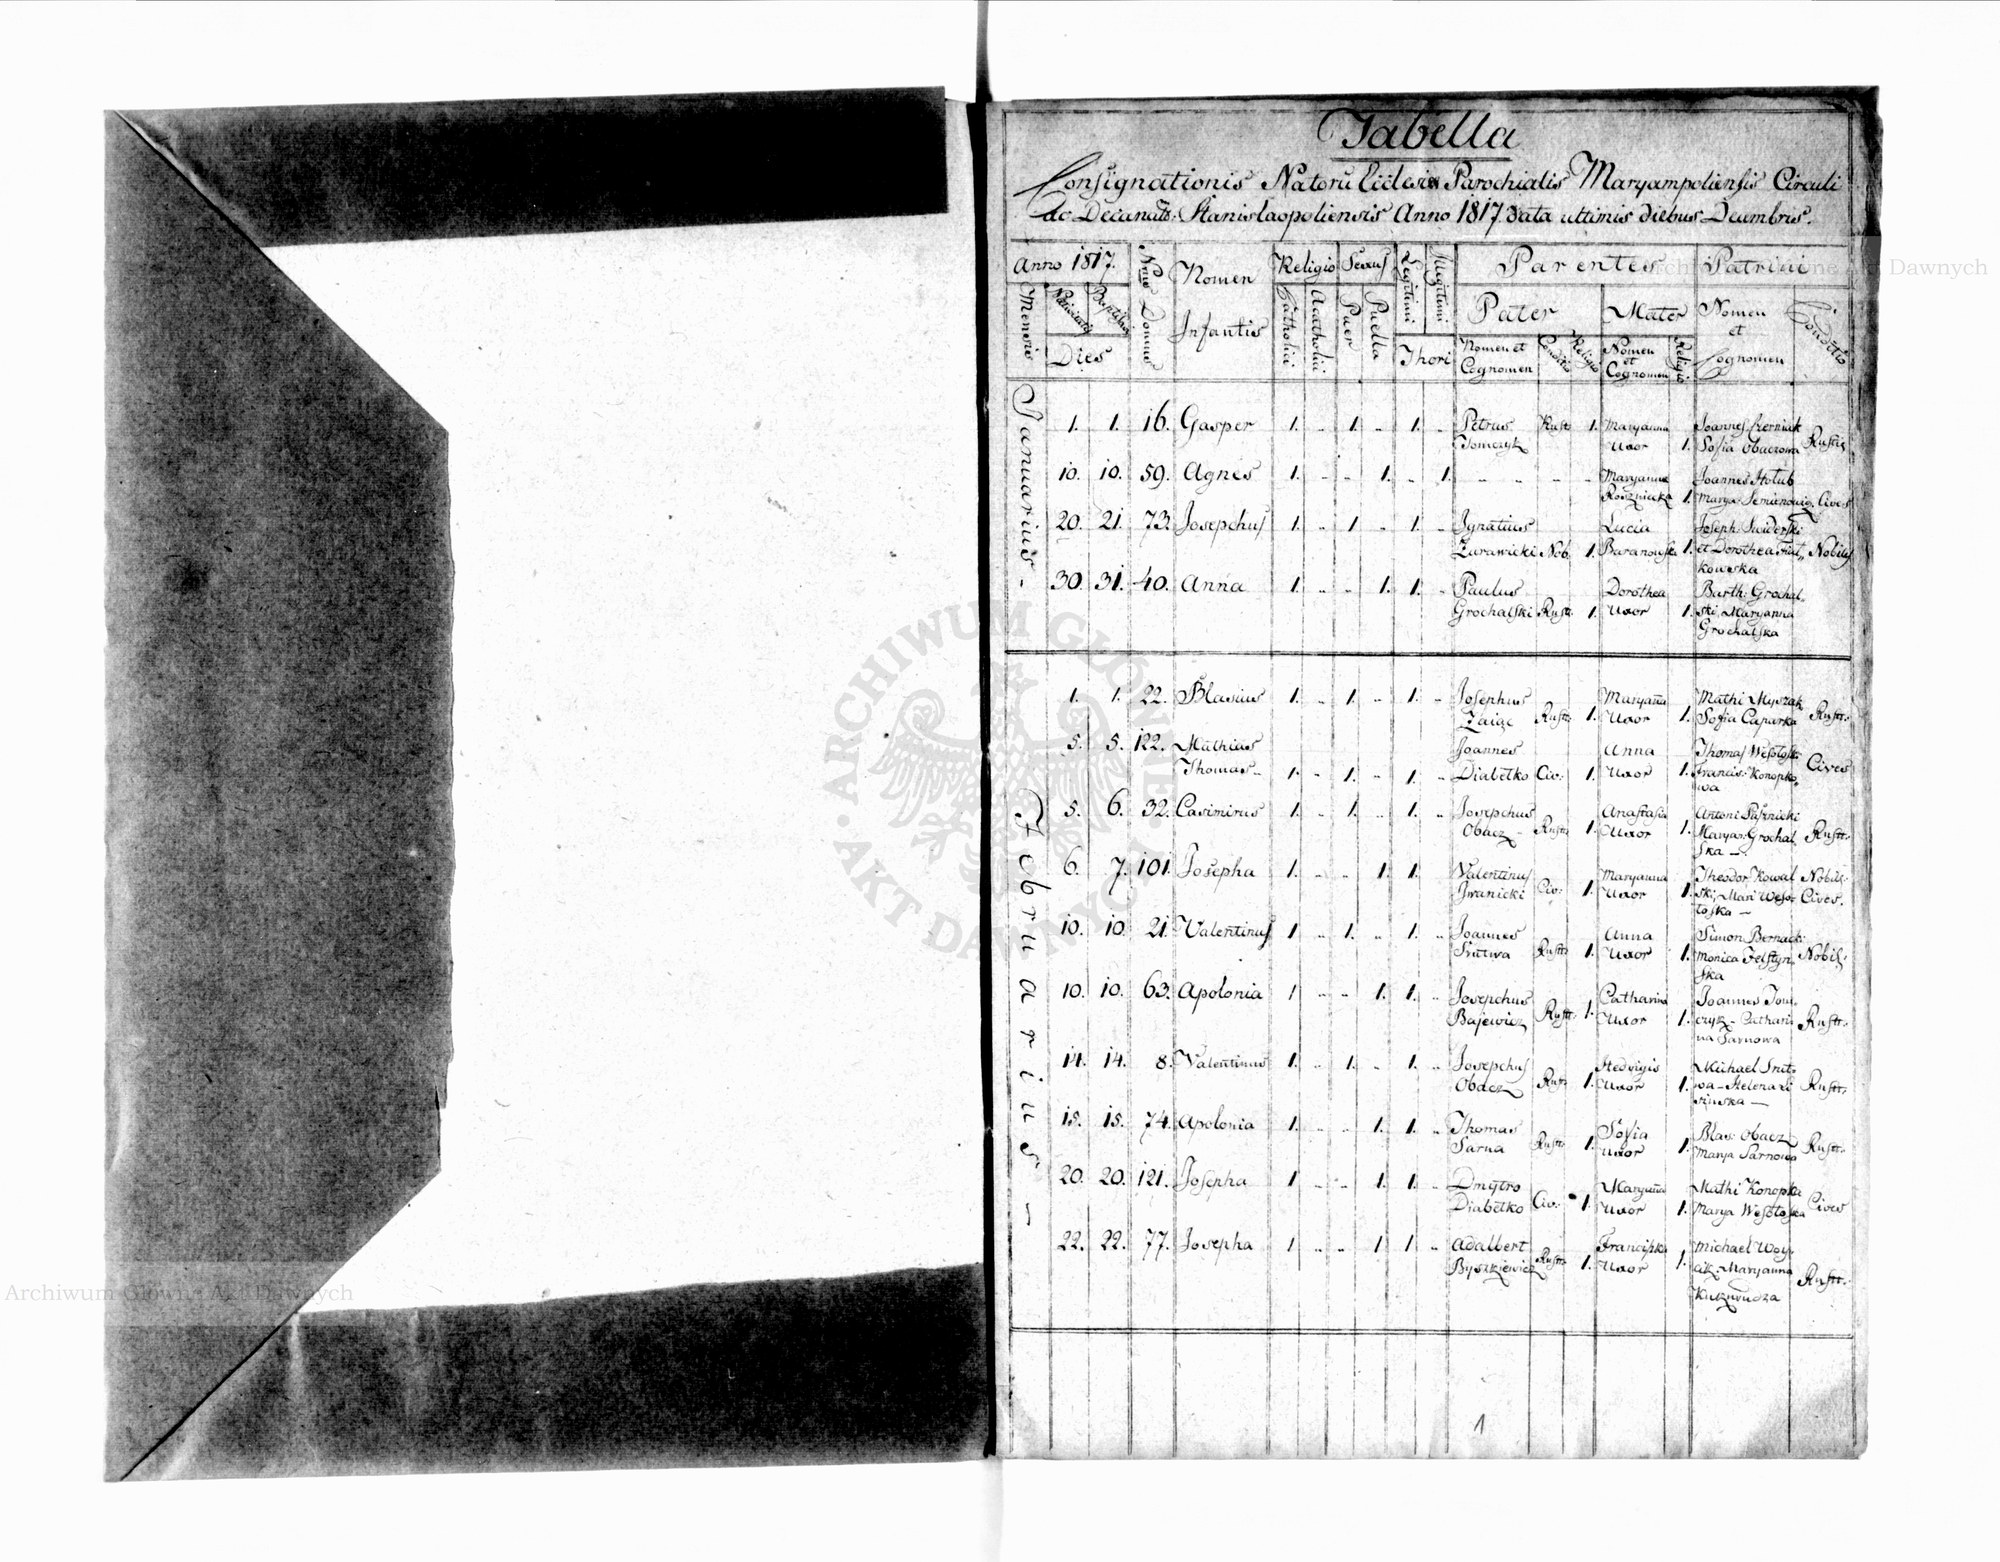 Tabella
Consignationis Natorū Ecclesiæ Parochialis Maryampoliensis Circuli
ac Decanats: Stanislaopoliensis Anno 1817. data ultimis diebus Decembris.
Anno 1817. Nrus Domus Nomen Infantis Religio Sexus Legitimi Illegitimi Parentes Patrini
Mensis Nativitatis Baptismi Catholici Acatholici Puer Puella Pater Mater Nomen et Cognomen Conditio
Dies Thori Nomen et Cognomen Conditio Religio Nomen et Cognomen Religio
Januarius -
1. 1. 16. Gasper 1. .. 1. .. 1. .. Petrus Rust: 1. Maryanna Joannes Czerniak
Tomczyk Uxor 1. Sofia Obaczowa Rustic
10. 10. 59. Agnes 1. .. .. 1. .. 1. .. .. .. .. Maryanna Joannes Holub
Roszniecka 1. Marya Semienowicz Cives
20. 21. 73. Josephus 1. .. 1. .. 1. .. Ignatius Lucia Joseph: Swiderski
Żurawicki Nob. 1. Baranowska 1. et Dorothea Fiał„ Nobiles
kowska
30. 31. 40. Anna 1. .. .. 1. 1. .. Paulus Dorothea Barth: Grochal
Grochalski Rust: 1. Uxor 1. ski, Maryanna
Grochalska
Februarius -
1. 1. 22. Blasius 1. .. 1. .. 1. .. Josephus Maryaña Mathi Myszak
Zaiąc Rust: 1. Uxor 1. Sofia Caparka Rustt:
5. 5. 122. Mathias Joannes Anna Thomas Wesołoski
Thomas - 1. .. 1. .. 1. .. Diabełko Civ: 1. Uxor 1. Francis: Konopko„ Cives
wa
5. 6. 32. Casimirus 1. .. 1. .. 1. .. Josephus Anastasia Antoni
Obacz - Rustt: 1. Uxor 1. Maryan: Grochal Rustt:
ska —
6. 7. 101. Josepha 1. .. .. 1. 1. Valentinus Maryanna Theodor Kowal Nobils:
Iwanicki Civ: 1. Uxor 1. ski, Mari Weso- Cives.
łoska —
10. 10. 21. Valentinus 1. .. 1. .. 1. .. Joannes Anna Simon Bernacki
Snitwa Rustt: 1. Uxor 1. Monica Felstyn„ Nobil:
ska
10. 10. 63. Apolonia 1 .. .. 1. 1. .. Josephus Catharina Joannes Tom„
Bajewicz Rustt: 1. Uxor 1. czyk - Cathari Rustt:
na Sarnowa
14. 14. 8. Valentinus 1. .. 1. .. 1. .. Josephus Hedvigis Michael Snit„
Obacz Rust: 1. Uxor 1. wa - Helena Rustt:
15. 15. 74. Apolonia 1. .. .. 1. 1. .. Thomas Sofia Blas: Obacz
Sarna Rustt: 1. Uxor 1. Marya Sarnowa Rustt:
20. 20. 121. Josepha 1 .. .. 1. 1. .. Dmytro Maryaña Mathi Konopka
Diabełko Civ: 1. Uxor 1. Marya Wesołoska Cives
22. 22. 77. Josepha 1 .. .. 1 1 .. Adalbert Franciska Michael Woy„
Byszkiewicz Rustt: 1. Uxor 1. Maryanna Rustt:
1
ARCHIWUM GŁÓWNE AKT DAWNYCH
Archiwum Główne Akt Dawnych
Archiwum Główne Akt Dawnych